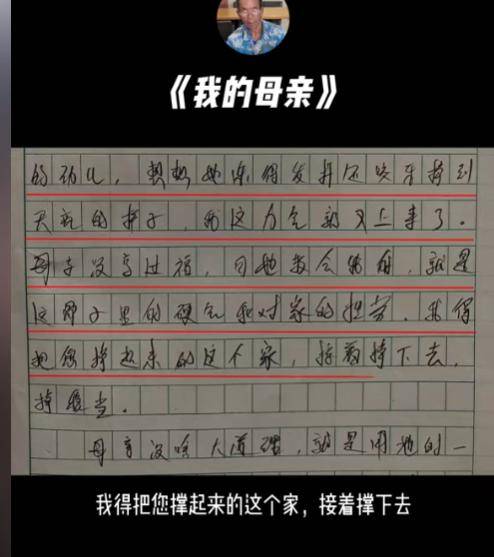 《我的母亲》
的劲儿，想想她累得发抖还咬牙撑到
天亮的样子，我这力气就又上来了。
母亲没享过福，可她教会我的，就是
这骨子里的硬气和对家的担当。我得
把您撑起来的这个家，接着撑下去，
撑稳当。
母亲没啥大道理，就是用她的一
我得把您撑起来的这个家，接着撑下去